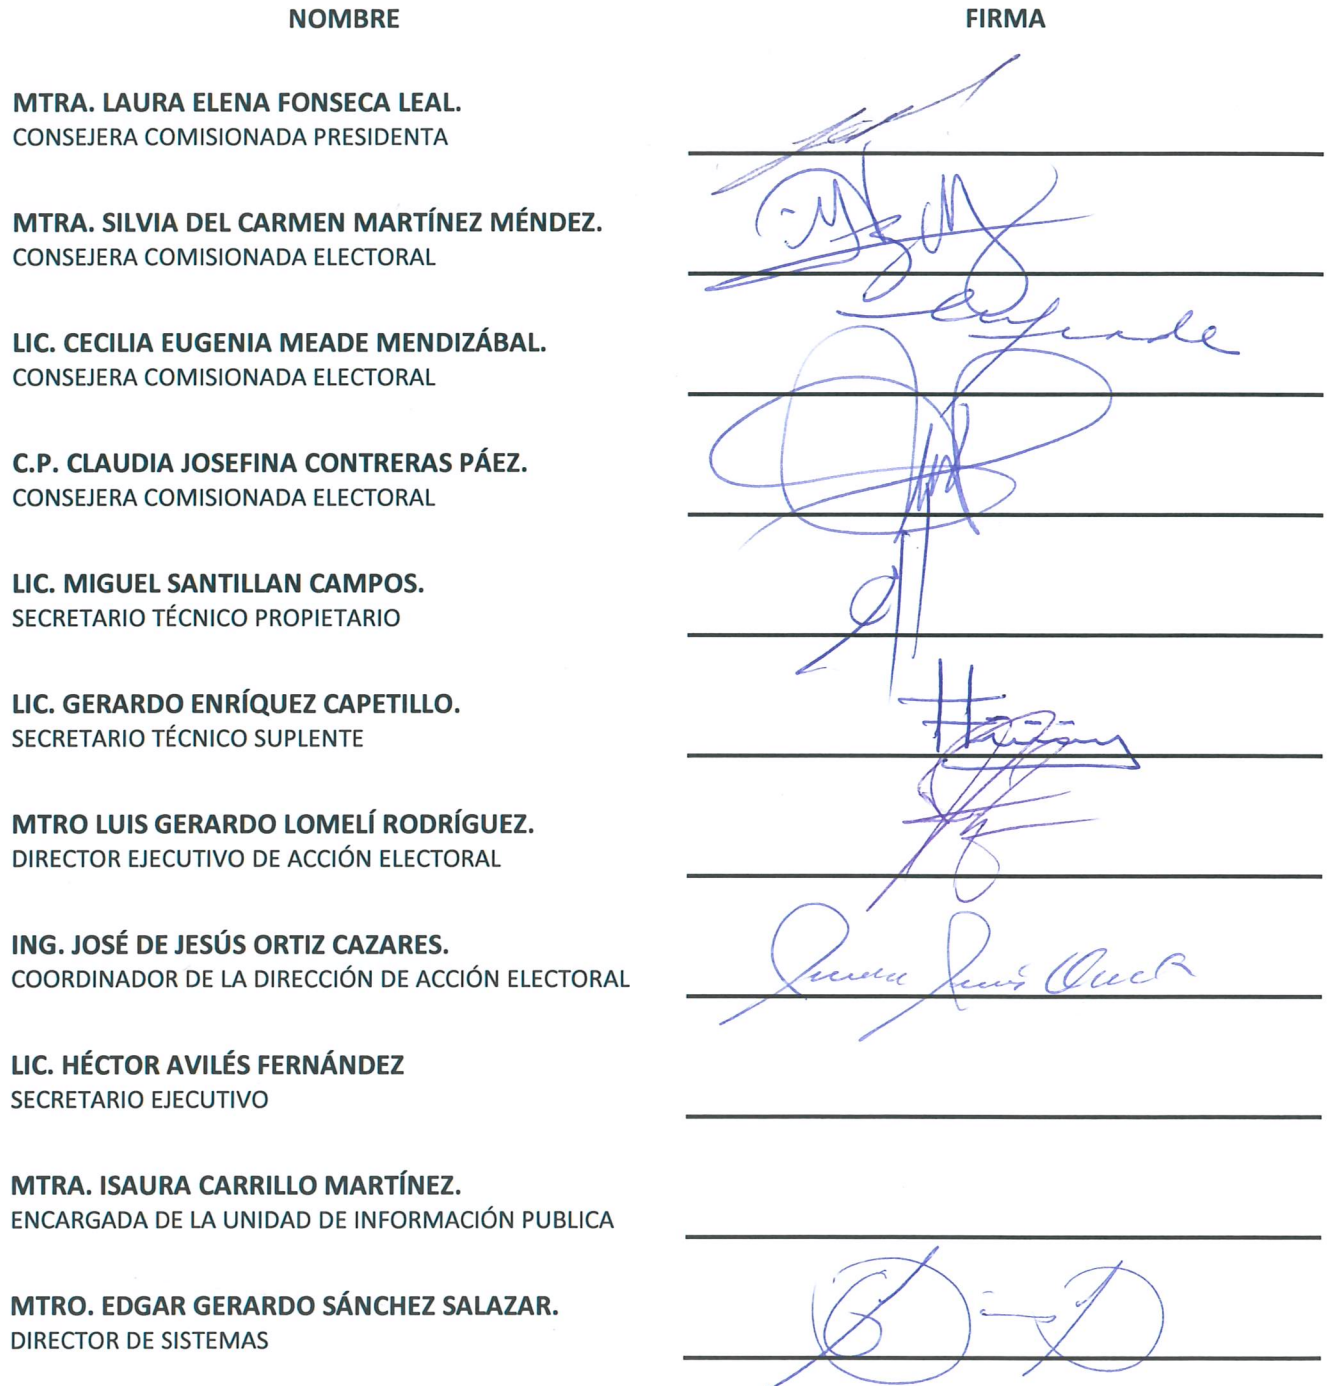 NOMBRE FIRMA
MTRA. LAURA ELENA FONSECA LEAL.
CONSEJERA COMISIONADA PRESIDENTA
MTRA. SILVIA DEL CARMEN MARTÍNEZ MÉNDEZ.
CONSEJERA COMISIONADA ELECTORAL
LIC. CECILIA EUGENIA MEADE MENDIZÁBAL.
CONSEJERA COMISIONADA ELECTORAL
C.P. CLAUDIA JOSEFINA CONTRERAS PÁEZ.
CONSEJERA COMISIONADA ELECTORAL
LIC. MIGUEL SANTILLAN CAMPOS.
SECRETARIO TÉCNICO PROPIETARIO
LIC. GERARDO ENRÍQUEZ CAPETILLO.
SECRETARIO TÉCNICO SUPLENTE
MTRO LUIS GERARDO LOMELÍ RODRÍGUEZ.
DIRECTOR EJECUTIVO DE ACCIÓN ELECTORAL
ING. JOSÉ DE JESÚS ORTIZ CAZARES.
COORDINADOR DE LA DIRECCIÓN DE ACCIÓN ELECTORAL
LIC. HÉCTOR AVILÉS FERNÁNDEZ
SECRETARIO EJECUTIVO
MTRA. ISAURA CARRILLO MARTÍNEZ.
ENCARGADA DE LA UNIDAD DE INFORMACIÓN PUBLICA
MTRO. EDGAR GERARDO SÁNCHEZ SALAZAR.
DIRECTOR DE SISTEMAS